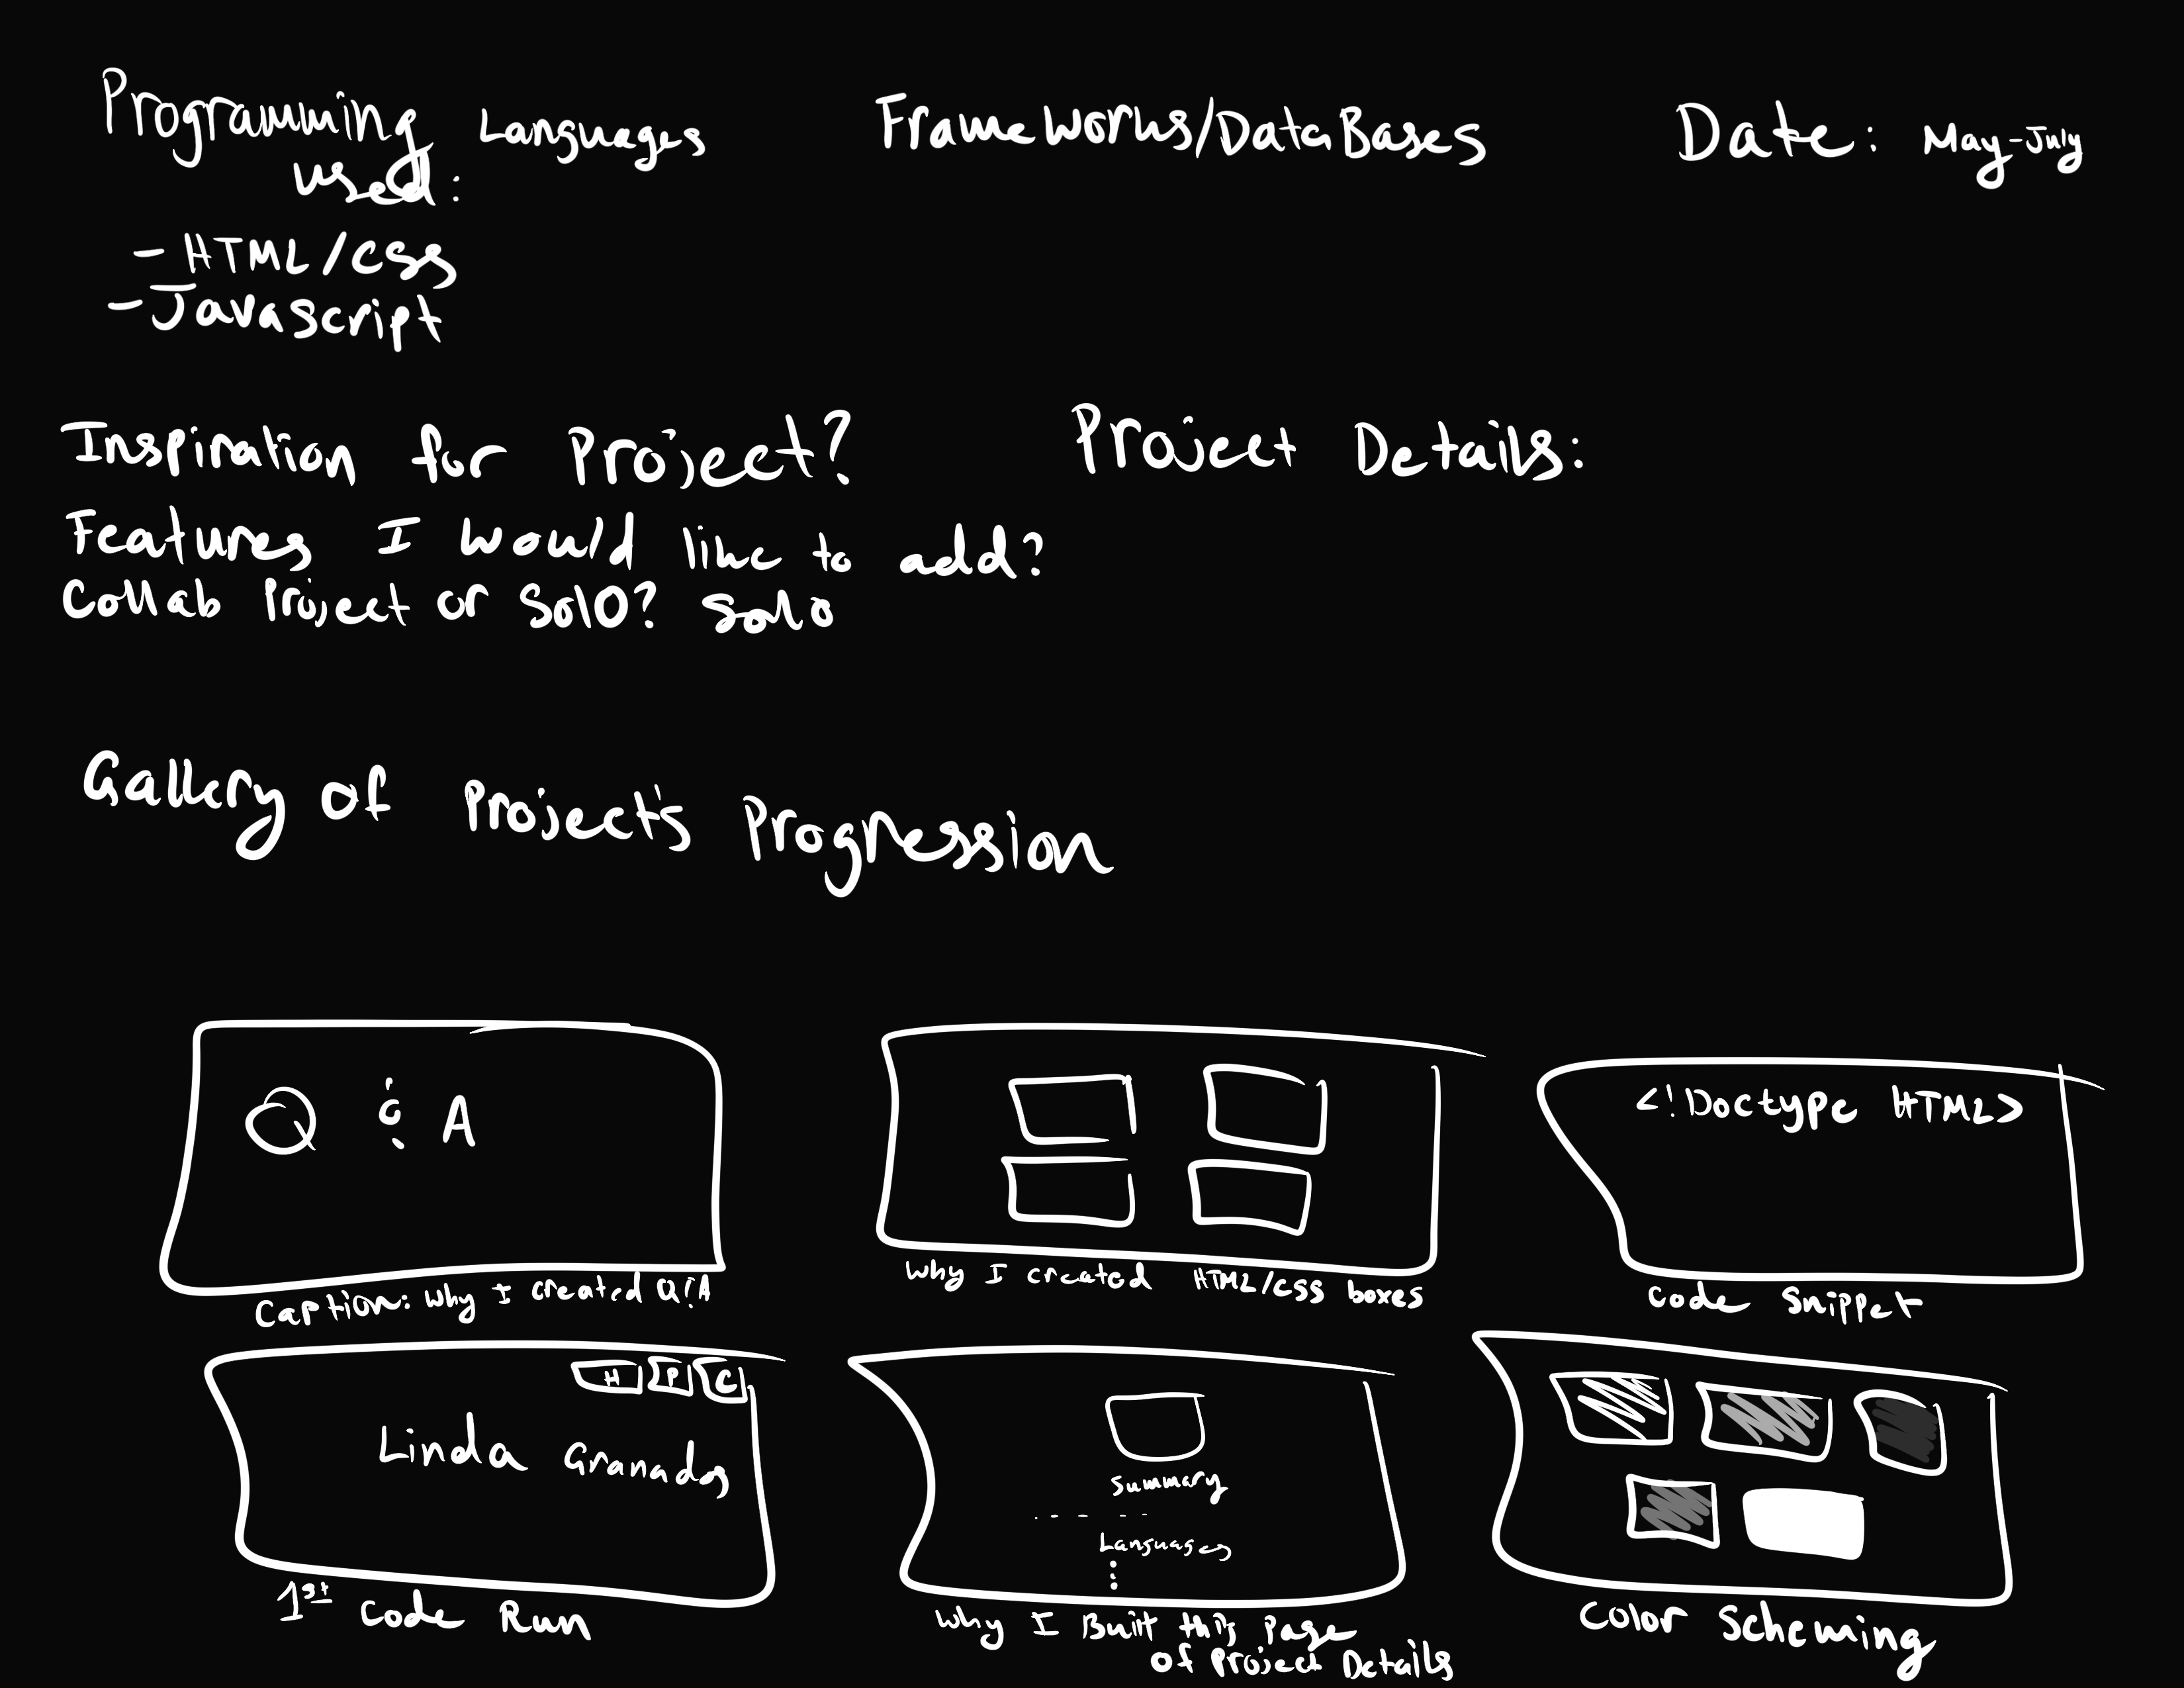 Programming Languages
used:
- HTML/CSS
- Javascript
Frameworks/DataBases
Date: May-July
Inspiration for Project?
Features I would like to add?
Collab Project or Solo? Solo
Project Details:
Gallery of Project's Progression
Q & A
Caption: Why I created Q&A
Why I created HTML/CSS boxes
<!Doctype HTML>
Code Snippet
H P C
Linda Granados
1st Code Run
Summary
Languages
Why I Built this page
of Project Details
Color Scheming